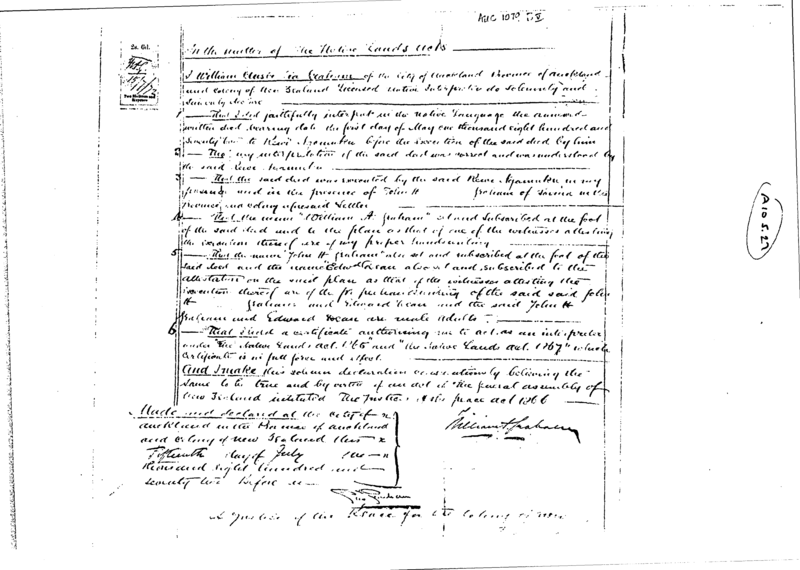 AUC 1070
2s. 6d.
In the matter of The Native Lands Acts
I William of the City of Auckland Province of Auckland
and Colony of New Zealand Licensed Native Interpreter do solemnly and
sincerely declare
1 That I did faithfully interpret in the native Language the annexed
written deed bearing date the first day of May one thousand eight hundred and
seventy two to before the execution of the said deed by him
2 That my interpretation of the said deed was correct and was understood by
the said
3 That the said deed was executed by the said in my
presence and in the presence of John H Graham of in the
Province and Colony aforesaid Settler
4 That the name "William A. Graham" set and subscribed at the foot
of the said deed and to the plan as that of one of the witnesses attesting
the execution thereof are of my proper handwriting
5 That the name "John H Graham" also set and subscribed at the foot of the
said deed and the name also set and subscribed to the
attestation on the said plan as that of the witnesses attesting the
execution thereof are of the proper handwriting of the said said John
H Graham and Edward and the said John H
Graham and Edward are male adults
6 That I hold a certificate authorising me to act as an interpreter
under "The Native Lands Act 1865" and "The Native Lands Act 1867" which
Certificate is in full force and effect
And I make this solemn declaration conscientiously believing the
same to be true and by virtue of an act of the general assembly of
New Zealand intituled The Justices of the peace act 1866
Made and declared at the city of
Auckland in the Province of Auckland
and Colony of New Zealand this
Fifteenth day of July one
thousand eight hundred and
seventy two Before me
William A Graham
A Justice of the Peace for the Colony of New
A10 5.27